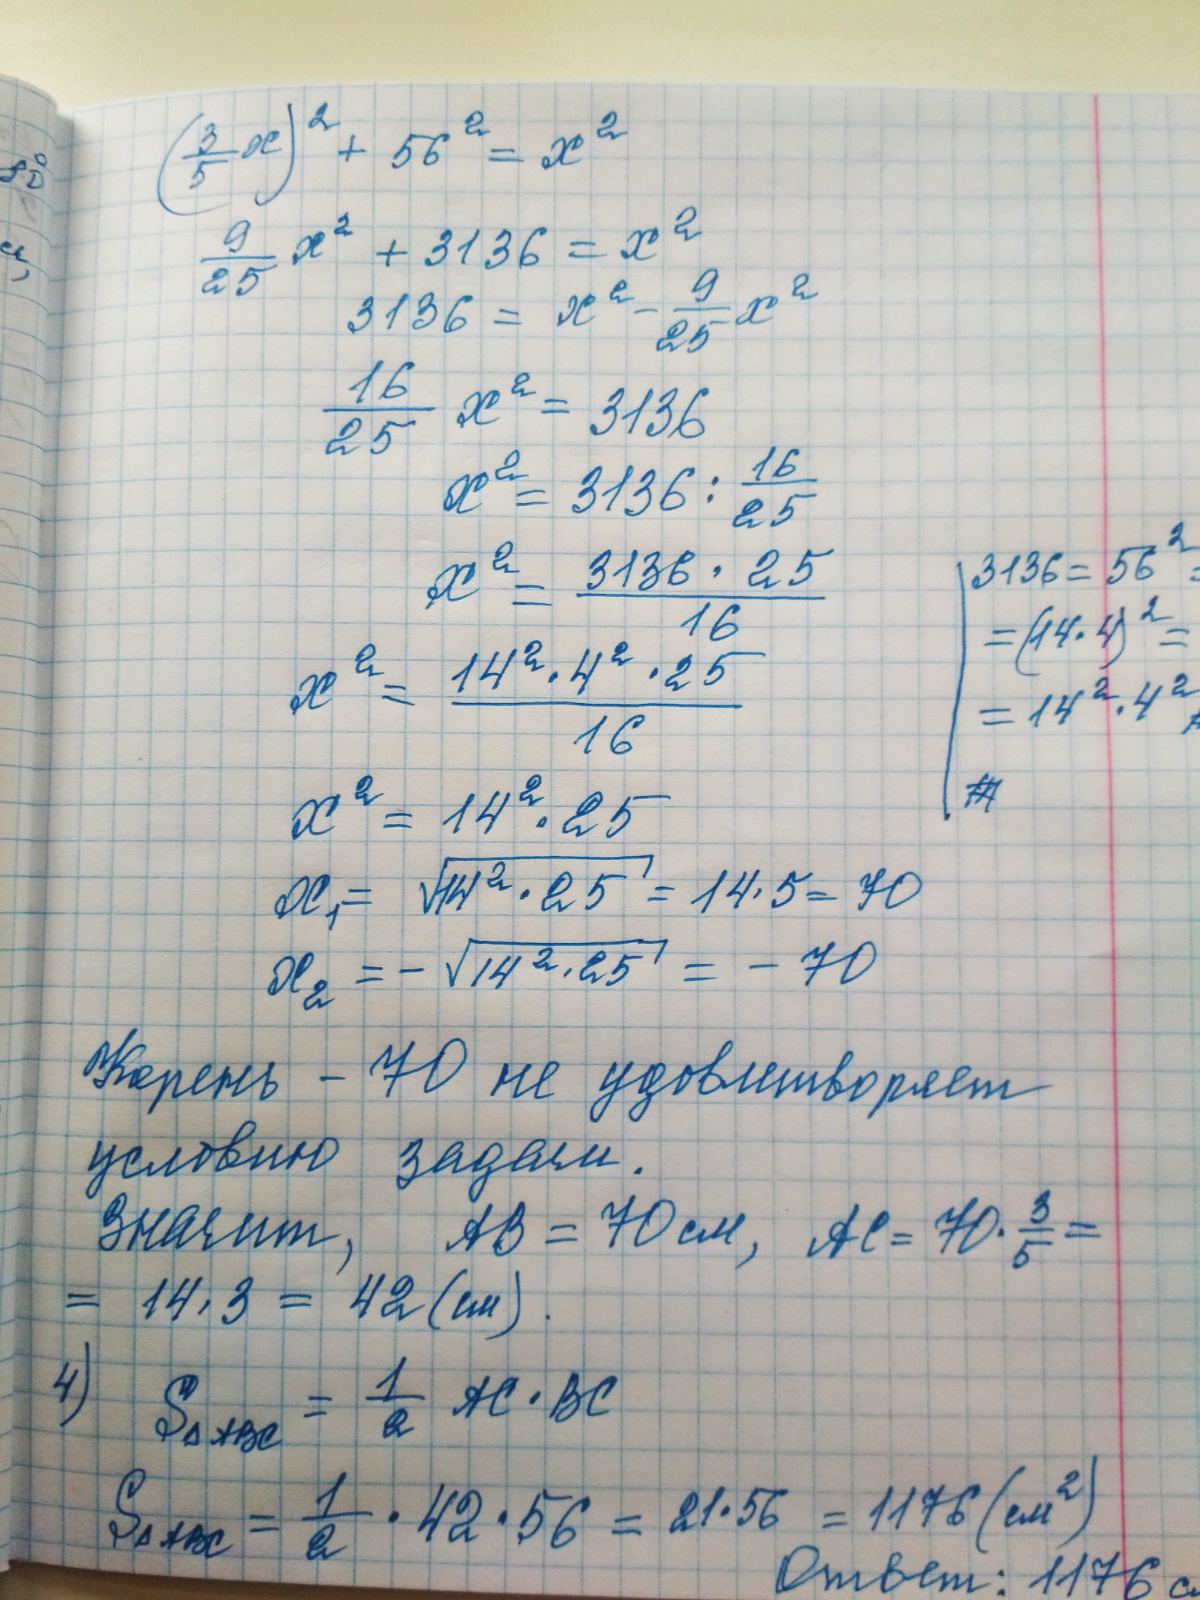 (3/5 x)² + 56² = x²
9/25 x² + 3136 = x²
3136 = x² - 9/25 x²
16/25 x² = 3136
x² = 3136 : 16/25
x² = 3136 · 25 / 16
x² = 14² · 4² · 25 / 16
x² = 14² · 25
x₁ = √14² · 25 = 14 · 5 = 70
x₂ = - √14² · 25 = - 70
3136 = 56² =
= (14 · 4)² =
= 14² · 4²
Корень - 70 не удовлетворяет
условию задачи.
Значит, AB = 70 см, AC = 70 · 3/5 =
= 14 · 3 = 42 (см).
4) S△ABC = 1/2 AC · BC
S△ABC = 1/2 · 42 · 56 = 21 · 56 = 1176 (см²)
Ответ: 1176 с